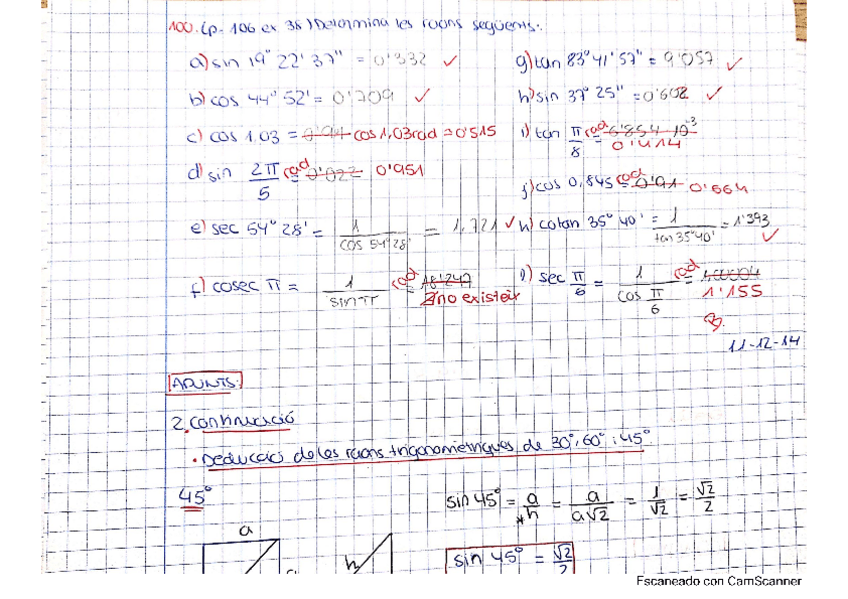 100. (p. 106 ex 38) Determina les raons següents:
a) sin 19° 22' 37" = 0'332 ✓
g) tan 83° 41' 57" = 9'057 ✓
b) cos 44° 52' = 0'709 ✓
h) sin 37° 25" = 0'602 ✓
c) cos 1,03 = 0'94 cos 1,03 rad = 0'515
i) tan π/8 rad = 6'854·10⁻³ 0'414
d) sin 2π/5 rad = 0'022 0'951
j) cos 0,845 rad = 0'91 0'664
e) sec 54° 28' = 1/cos 54° 28' = 1,721 ✓
k) cotan 35° 40' = 1/tan 35° 40' = 1'393 ✓
f) cosec π = 1/sin π rad = 18'247 no existeix
l) sec π/6 = 1/cos π/6 rad = 1'155
B.
11-12-14
APUNTS:
2. Continuació
· Deducció de les raons trigonomètriques de 30°, 60° i 45°
45°
sin 45° = a/h = a/a√2 = 1/√2 = √2/2
*
a
h
sin 45° = √2/2
Escaneado con CamScanner